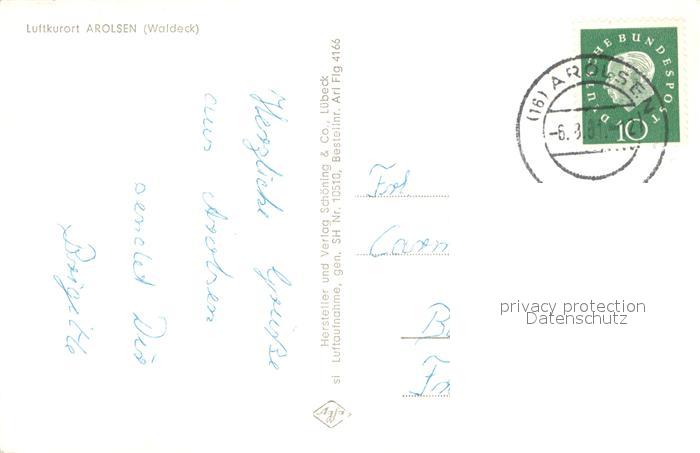 Luftkurort AROLSEN (Waldeck)
Herzliche Grüße
aus Arolsen
sendet Dir
Brigitte
Hersteller und Verlag Schöning & Co., Lübeck
si Luftaufnahme, gen. SH Nr. 10510, Bestellnr. Arl Flg 4166
DEUTSCHE BUNDESPOST
10
(16) AROLSEN
Frl.
Carm
B
Fr
privacy protection
Datenschutz